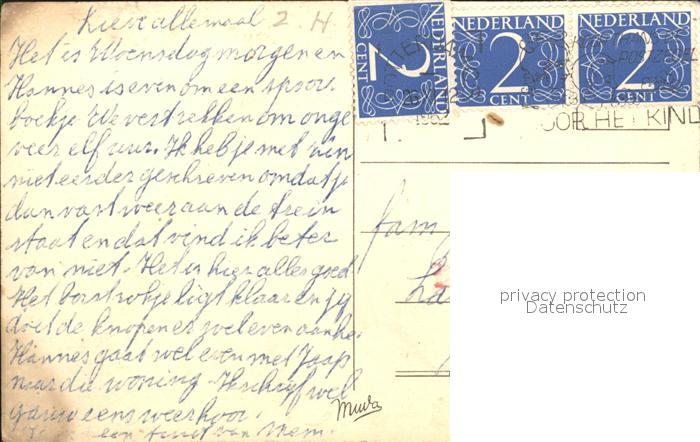 Lieve allemaal 2 H
Het is Woensdag morgen en
Hannes is even om een spoor
boekje We vertrekken om onge
veer elf uur. Ik heb je met
niet eerder geschreven omdat je
dan vast weer aan de trein
staat en dat vind ik beter
van niet. Het is hier alles goed
Het borstrokje ligt klaar en jij
doet de knopen er wel even aan he.
Hannes gaat wel even met Jaap
naar die woning. Ik schrijf wel
gauw eens weer hoor.
een van Mem.
NEDERLAND
2
CENT
NEDERLAND
2
CENT
NEDERLAND
2
CENT
HET KIND
fam
privacy protection
Datenschutz